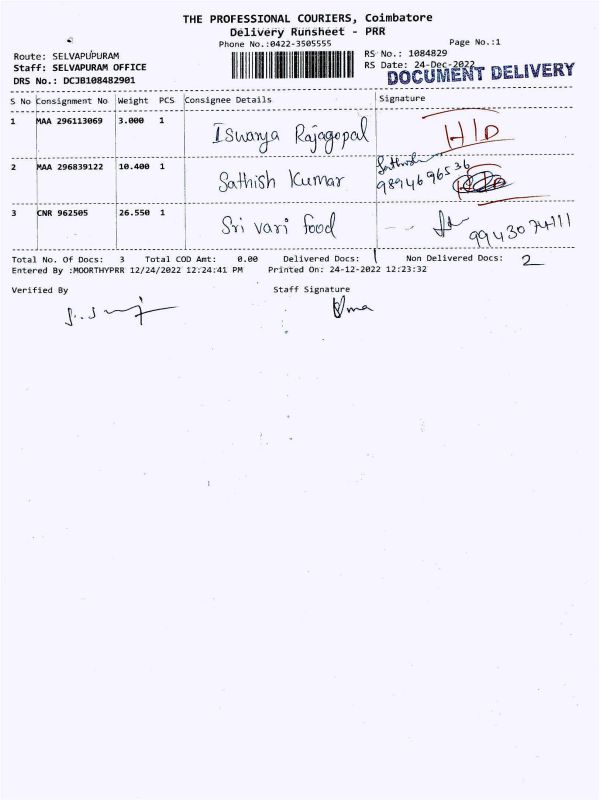 THE PROFESSIONAL COURIERS, Coimbatore
Delivery Runsheet - PRR
Phone No.:0422-3505555 Page No.:1
Route: SELVAPUPURAM RS No.: 1084829
Staff: SELVAPURAM OFFICE RS Date: 24-Dec-2022
DRS No.: DCJB108482901 DOCUMENT DELIVERY
S No Consignment No Weight PCS Consignee Details Signature
1 MAA 296113069 3.000 1 Iswarya Rajagopal H/D
2 MAA 296839122 10.400 1 Sathish Kumar Sathish
9894696536
3 CNR 962505 26.550 1 Sri vari food 9943074111
Total No. Of Docs: 3 Total COD Amt: 0.00 Delivered Docs: 1 Non Delivered Docs: 2
Entered By :MOORTHYPRR 12/24/2022 12:24:41 PM Printed On: 24-12-2022 12:23:32
Verified By Staff Signature
Uma